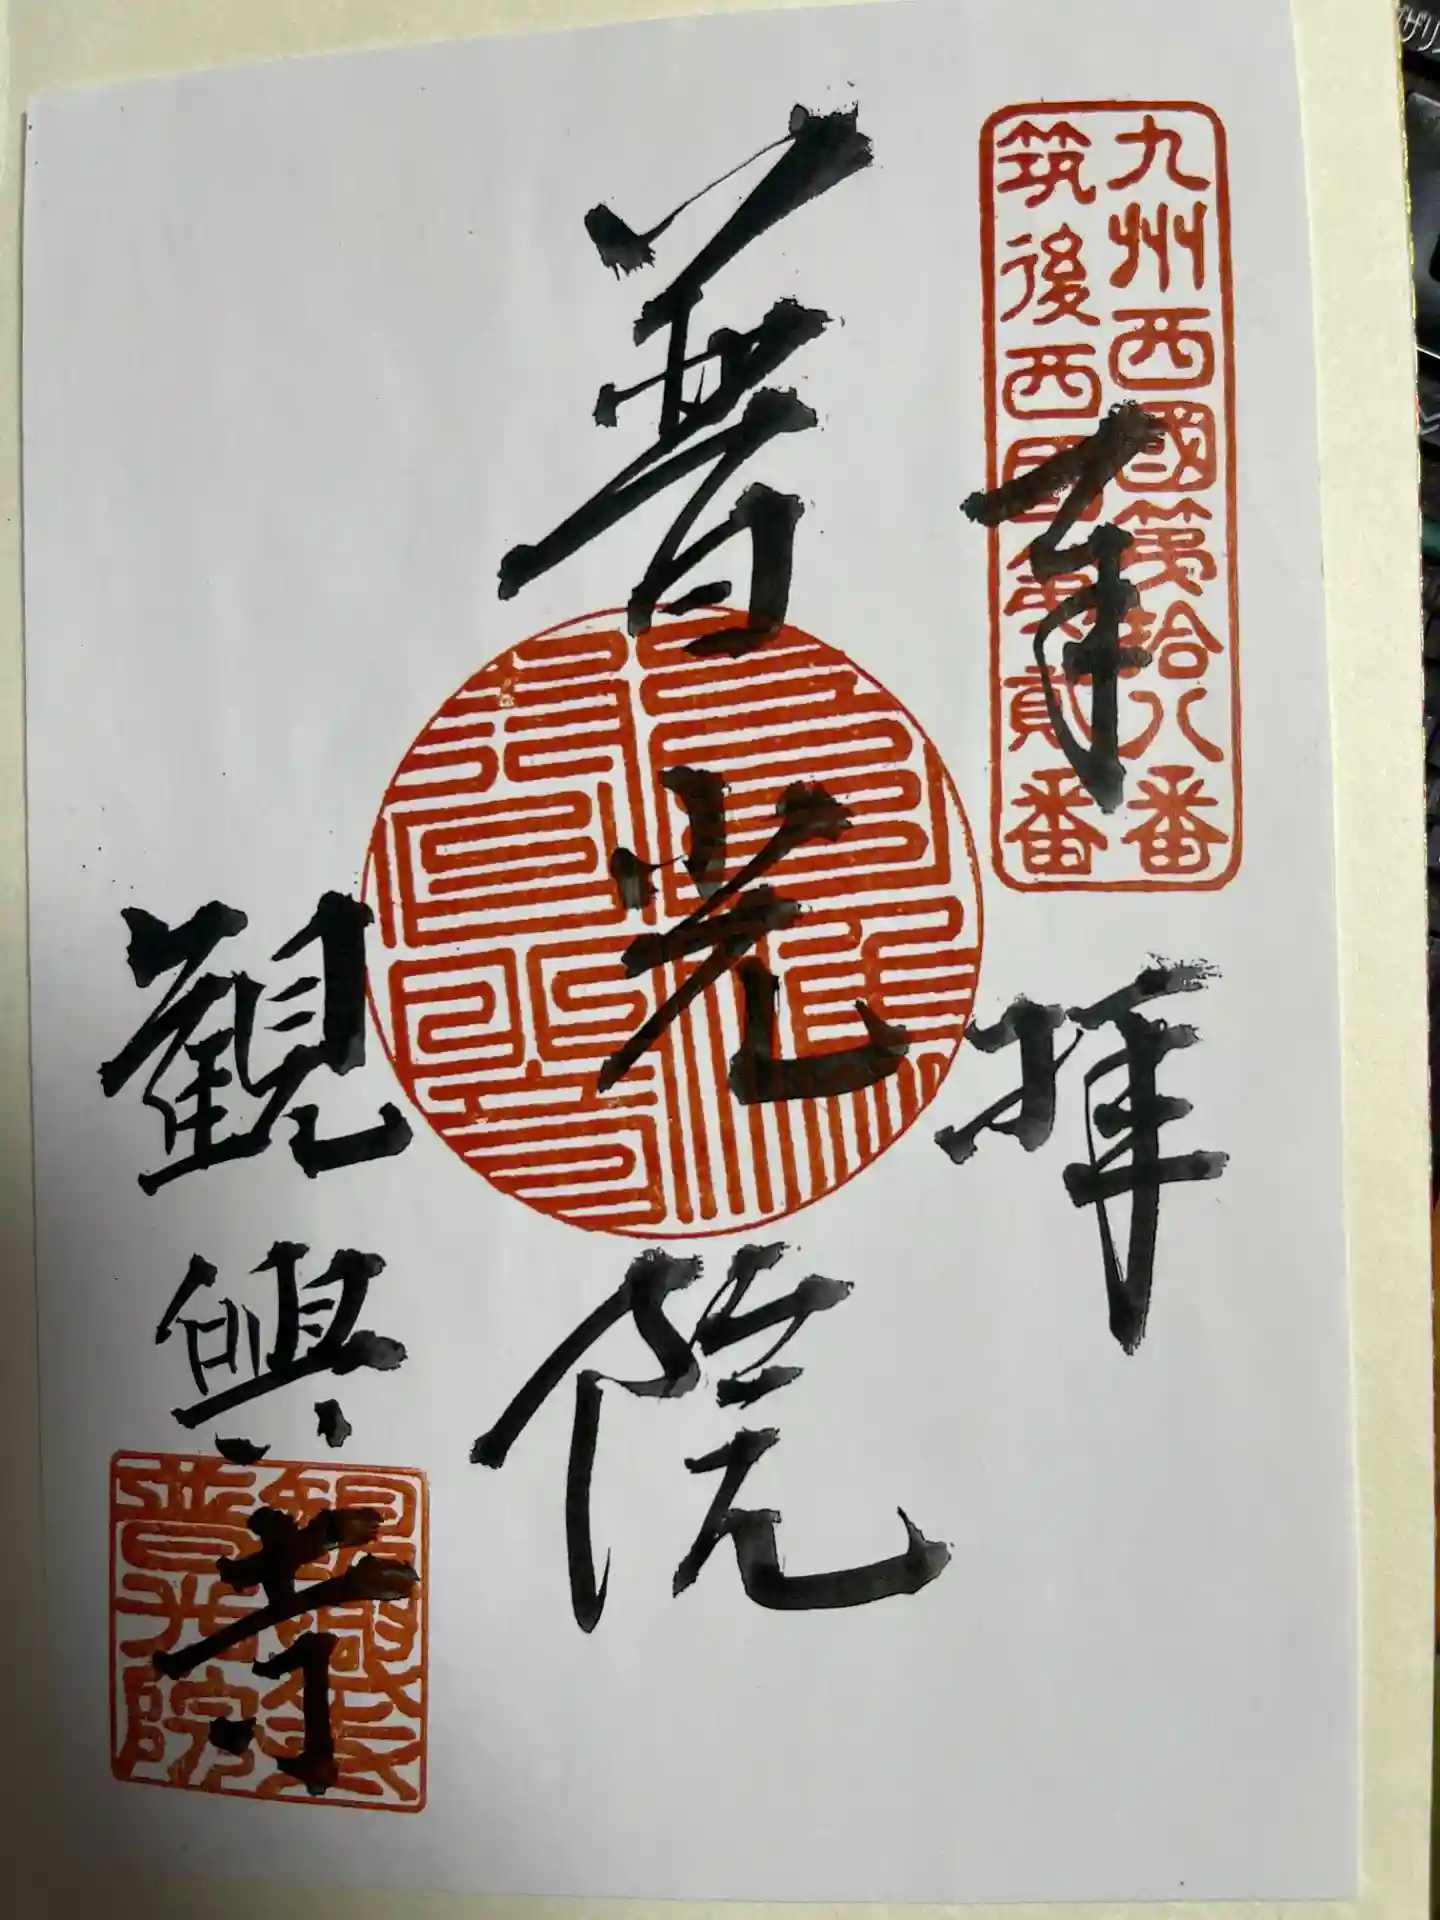 九州西國第拾八番
筑後西國第貳番
奉拝
普光院
觀興寺
普光院